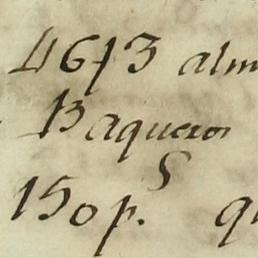 4673 alm
Baqueros
150 p.s q